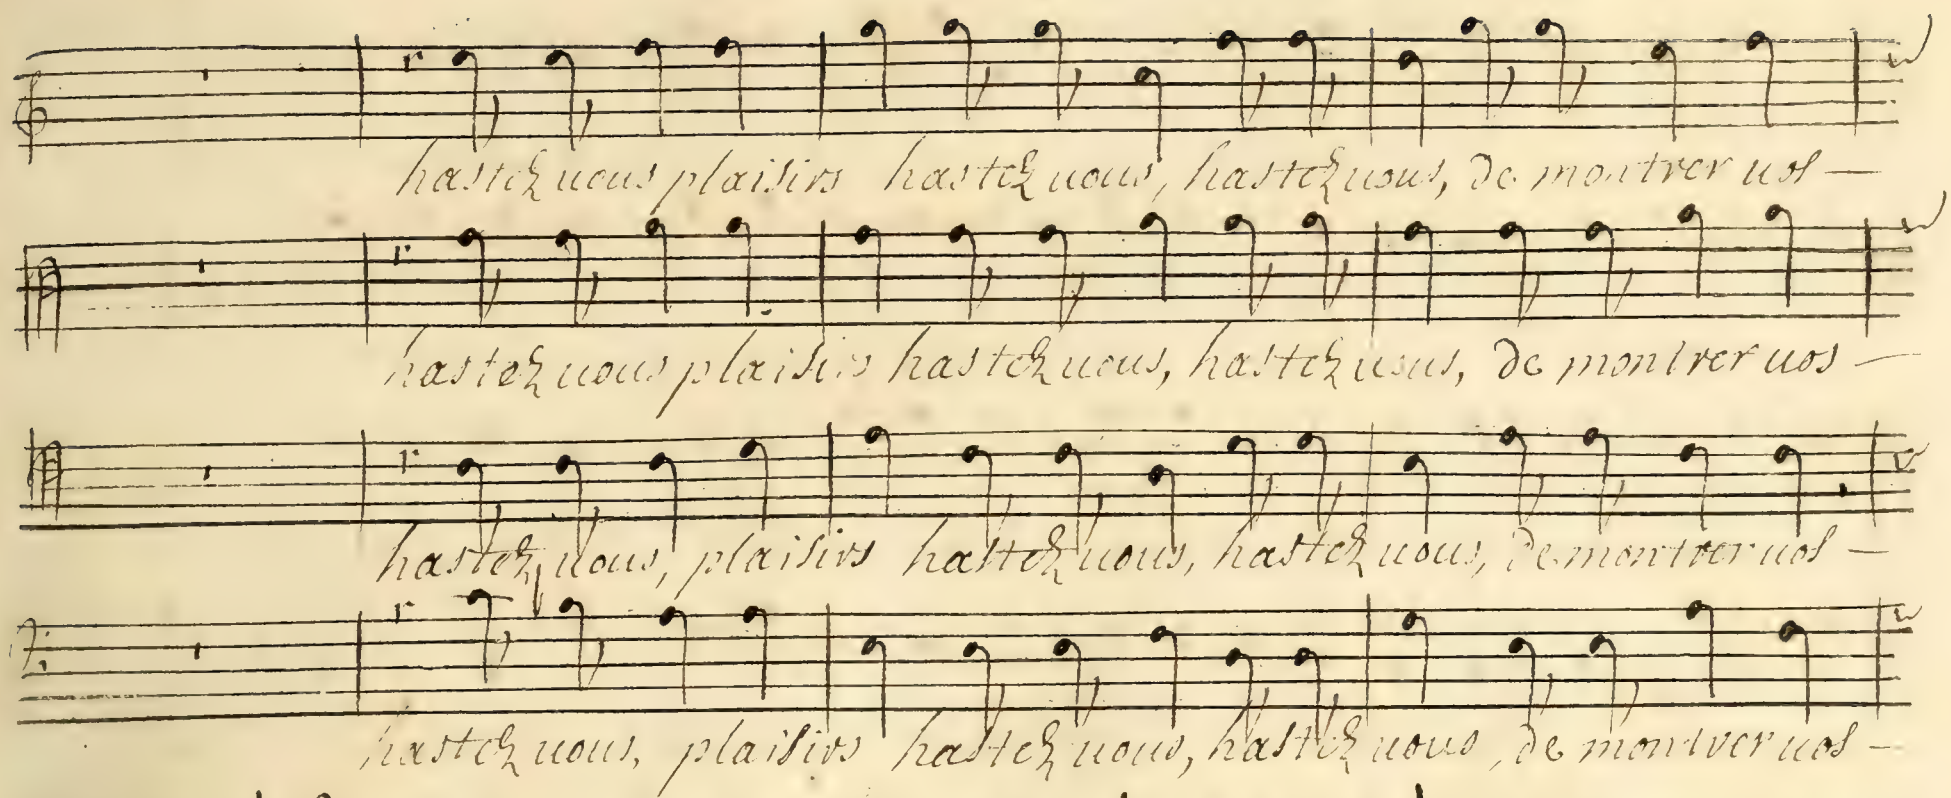 hastez uous plaisirs hastez uous, hastez uous, de montrer uos —
hastez uous plaisirs hastez uous, hastez uous, de montrer uos —
hastez uous, plaisirs hastez uous, hastez uous, de montrer uos —
hastez uous, plaisirs hastez uous, hastez uous, de montrer uos —